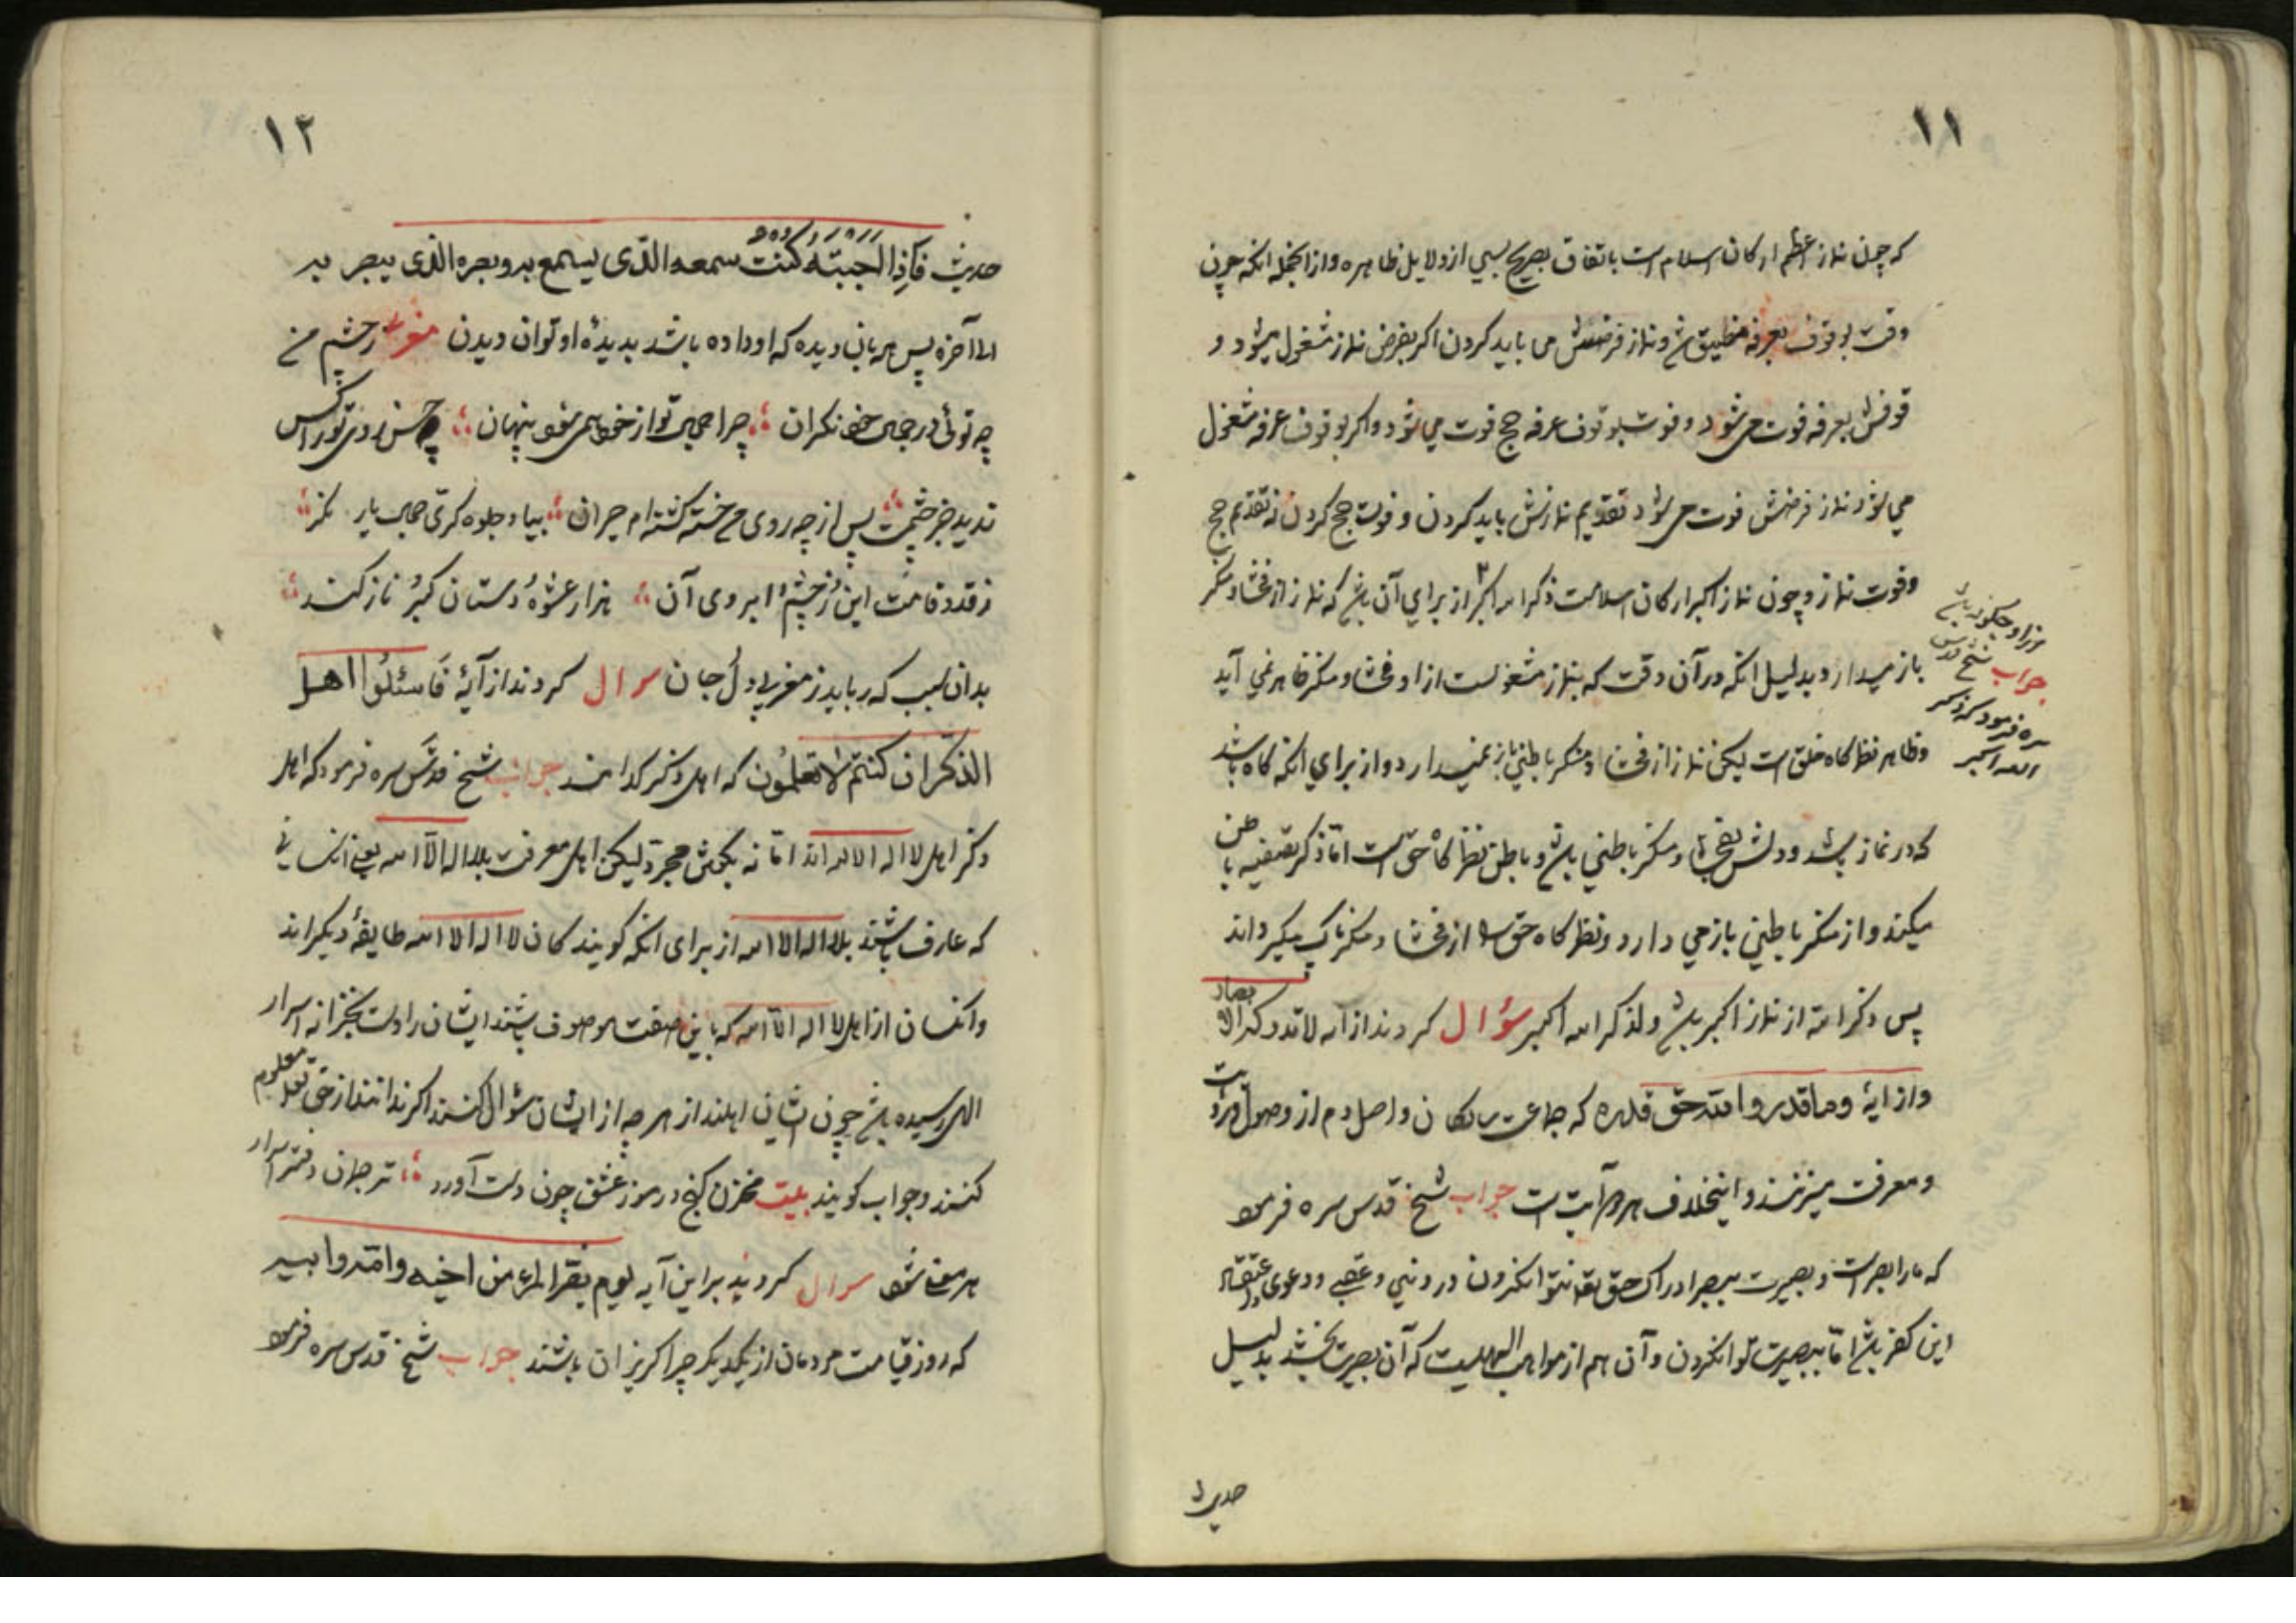 ١١
که چون نماز اعظم ارکان اسلام است باتفاق بصریح بسی از دلایل ظاهره و از انجمله انکه چون
وقت بوقوف بعرفه و نماز فرضش می باید کردن اکر بفرض نماز مشغول میشود و
قوفش بعرفه فوت می شود و فوت بوقوف عرفه حج فوت می شود و اکر بوقوف عرفه مشغول
می شود نماز فرضش فوت می شود تقدیم نمازش باید کردن و فوت حج کردن نه تقدیم حج
و فوت نماز و چون نماز اکبر ارکان اسلامست ذکر الله اکبر از برای آن باشد که نماز از فحشا و منکر
باز میدارد بدلیل انکه در آن وقت که بنماز مشغولست از او فحشا و منکر ظاهر نمی آید
و ظاهر نظرکاه خلق است لیکن نماز از فحشا و منکر باطنی باز نمیدارد و از برای انکه کاه باشد
که در نماز باشد و دلش بفحشا و منکر باطنی باشد و باطن نظرکاه حق است اما ذکر تصفیه باطن
میکند و از منکر باطنی باز می دارد و نظرکاه حق را از فحشا و منکر پاک میکرداند
پس ذکر الله از نماز اکبر باشد ولذکر الله اکبر سؤال کردند از آیه لا تدرکه الابصار
و از آیهٔ وما قدروا الله حق قدره که جماعت سالکان واصل دم از وصول و رؤیت
و معرفت میزنند و اینخلاف هر دو آیت است جواب شیخ قدس سره فرمود
که ما را بصر است و بصیرت ببصر ادراک حق تعالی نتوانکردن در دنیی و عقبی و دعوی و اعتقاد
این کفر باشد اما ببصیرت توانکردن و آن هم از مواهب الهیست که آن بصیرت بخشد بدلیل
حدیث
مراد چکونه باشد
جواب شیخ قدس
سره فرمود که ذکر
الله اکبر
١٢
حدیث فاذا احببته کنت سمعه الذی یسمع به وبصره الذی یبصر به
الی آخره پس هر بان دیده که او داده باشد بدیدهٔ او توان دیدن مغربی ز چشم من
چه توئی در جمال خود نکران چرا جمال تو از خود همی شود پنهان چو حسن روی تو را کس
ندید جز چشمت پس از چه روی من خسته کشته ام حیران بیا و جلوه کری جمال یار نکر
ز قد و قامت این و ز چشم و ابروی آن هزار عشوه و دستان کبر و ناز کند
بدان سبب که رباید ز مغربی دل و جان سوال کردند از آیهٔ فاسئلوا اهل
الذکر ان کنتم لا تعلمون که اهل ذکر کدامند جواب شیخ قدس سره فرمود که اهل
ذکر اهل لا اله الا الله اند اما نه بکفتن مجرد لیکن اهل معرفت بلا اله الا الله یعنی انکسانی
که عارف باشند بلا اله الا الله از برای انکه کویندکان لا اله الا الله طایفهٔ دیکراند
و انکسان از اهل لا اله الا الله که باین صفت موصوف باشند ایشان را دست بخزانه اسرار
الهی رسیده باشد چون ایشان اهلند از هر چه از ایشان سؤال کنند اکر ندانند از حق تعالی معلوم
کنند و جواب کویند بیت مخزن کنج رموز عشق چون دست آورد ترجمان دفتر اسرار
هر معنی شود سوال کردند بر این آیه یوم یفر المرء من اخیه وامه وابیه
که روز قیامت مردمان از یکدیکر چرا کریزان باشند جواب شیخ قدس سره فرمود